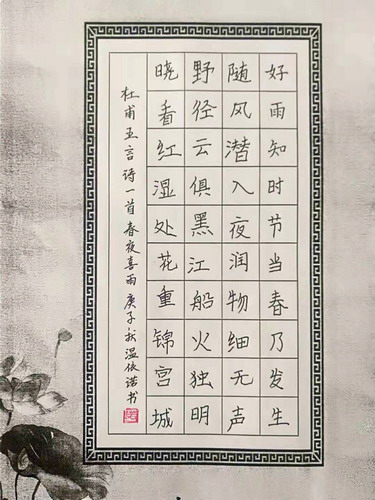 好雨知时节当春乃发生
随风潜入夜润物细无声
野径云俱黑江船火独明
晓看红湿处花重锦宫城
杜甫五言诗一首春夜喜雨庚子秋温依诺书